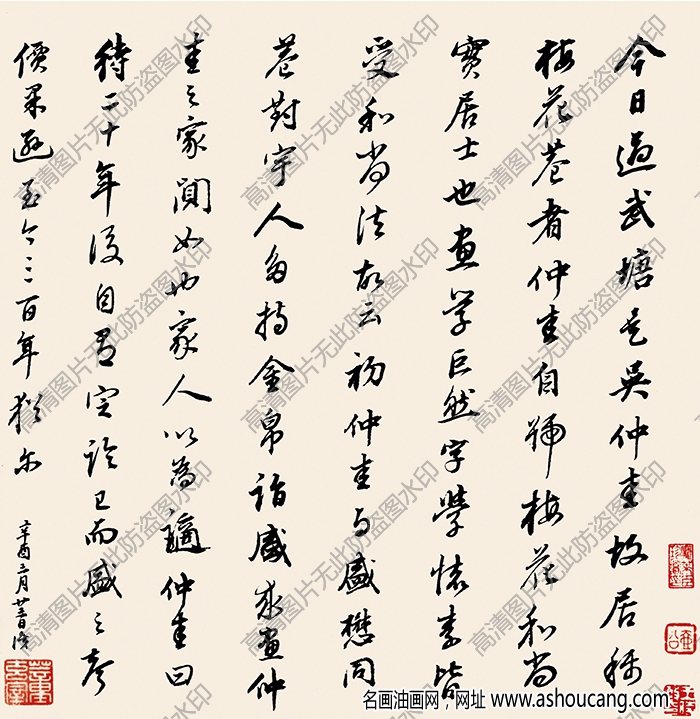 今日過武塘是吳仲圭故居稱
梅花菴者仲圭自號梅花和尚
實居士也畫學巨然字學懷素皆
受和尚法故云初仲圭与盛懋同
菴對宇人多持金帛詣盛求畫仲
圭之家闃如也家人以為謫仲圭曰
待二十年後目有定論已而盛之聲
價果遜至今三百年猶尔
辛酉三月廿
名画油画网，网址 www.ashoucang.com
高清图片无此防盗图水印